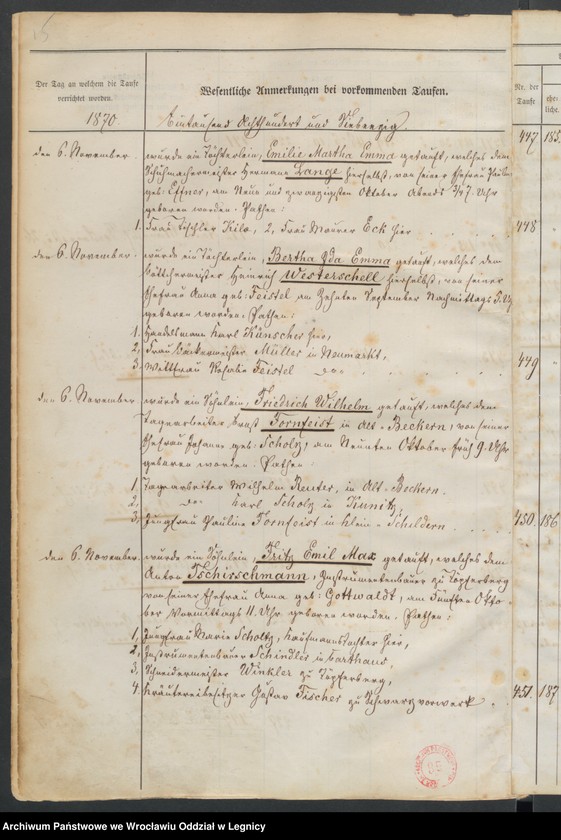 Der Tag an welchem die Taufe
verrichtet worden.
Wesentliche Anmerkungen bei vorkommenden Taufen.
Nr. der
Taufe
ehe-
liche.
1870
Eintausend Achthundert und Siebenzig.
447 185
den 6. November. wurde ein Töchterlein, Emilie Martha Emma getauft, welches dem
Schuhmachermeister Hermann Lange hierselbst, von seiner Ehefrau Pauline
geb: Effner, am Neun und zwanzigsten Oktober Abends 3/4 7. Uhr
geboren worden. Pathen:
1. Frau Tischler Kilo, 2, Frau Maurer Eck hier
448
den 6. November. wurde ein Töchterlein, Bertha Ida Emma getauft, welches dem
Böttchermeister Heinrich Westerschell hierselbst, von seiner
Ehefrau Anna geb: Feistel am Zehnten September Nachmittags 5. Uhr
geboren worden. Pathen:
1. Handelsmann Karl Künscher hier,
2, Frau Bäckermeister Müller in Neumarkt,
3. Wittfrau Rosalie Feistel do
449
den 6. November wurde ein Söhnlein, Friedrich Wilhelm getauft, welches dem
Tagearbeiter Ernst Fornfeist in Alt-Beckern, von seiner
Ehefrau Johanne geb: Scholz, am Neunten Oktober früh 9. Uhr
geboren worden. Pathen:
1, Tagearbeiter Wilhelm Reuter, in Alt-Beckern.
2, do Karl Scholz in Kunitz,
3, Jungfrau Pauline Fornfeist in Klein-Schildern
450. 186
den 6. November. wurde ein Söhnlein, Fritz Emil Max getauft, welches dem
Anton Tschirschmann, Instrumentenbauer zu Töpferberg
von seiner Ehefrau Anna geb: Gottwaldt, am Fünften Okto-
ber Vormittags 11. Uhr geboren worden. Pathen:
1, Jungfrau Marie Scholtz, Kaufmannstochter hier,
2, Instrumentenbauer Schindler in Carthaus,
3, Schneidermeister Winkler zu Töpferberg,
4. Kräutereibesitzer Gustav Fischer zu Schwarzvorwerk.
451. 187
Archiwum Państwowe we Wrocławiu Oddział w Legnicy